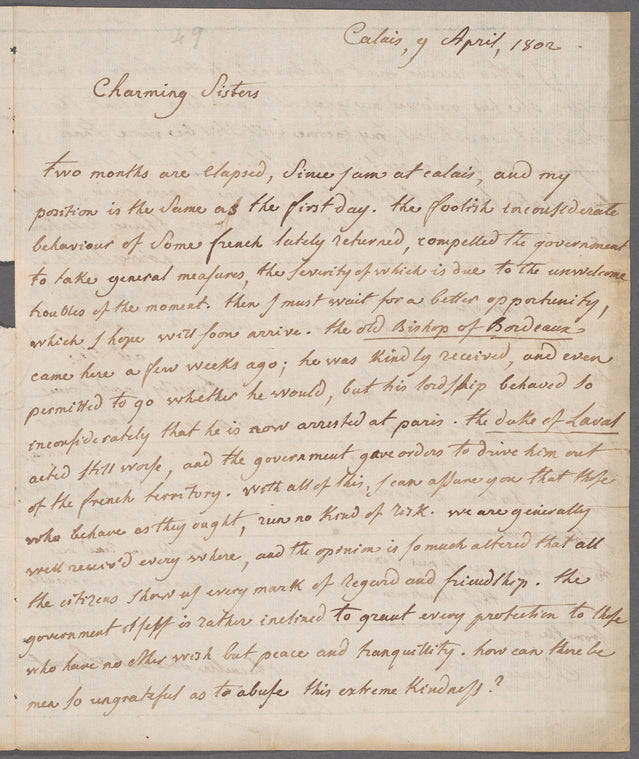 49
Calais, 9 April, 1802.
Charming Sisters
two months are elapsed, Since I am at calais, and my
position is the Same as the first day. the foolish inconsiderate
behaviour of Some french lately returned, compelled the government
to take general measures, the severity of which is due to the unwelcome
troubles of the moment. then I must wait for a better opportunity,
which I hope will soon arrive. the old Bishop of Bordeaux
came here a few weeks ago; he was Kindly received, and even
permitted to go whether he would, but his lordship behaved so
inconsiderately that he is now arrested at paris. the duke of Laval
acted still worse, and the government gave orders to drive him out
of the french territory. with all of this, I can assure you that those
who behave as they ought, run no Kind of risk. we are generally
well receiv'd every where, and the opinion is so much altered that all
the citizens show us every mark of regard and friendship. the
government itself is rather inclined to grant every protection to those
who have no other wish but peace and tranquillity. how can there be
men so ungrateful as to abuse this extreme Kindness?